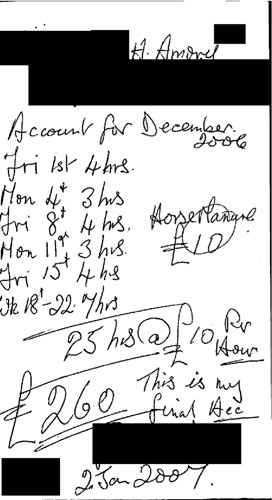 H. Amory
Account for December.
2006
Fri 1st 4 hrs.
Mon 4th 3 hrs
Fri 8th 4 hrs.
Horse Manure
£10
Mon 11th 3 hrs.
Fri 15th 4 hs
Wk 18th-22. 7 hrs
25 hrs @ £10 Per
Hour
£260 This is my
final Acc
2 Jan 2007.